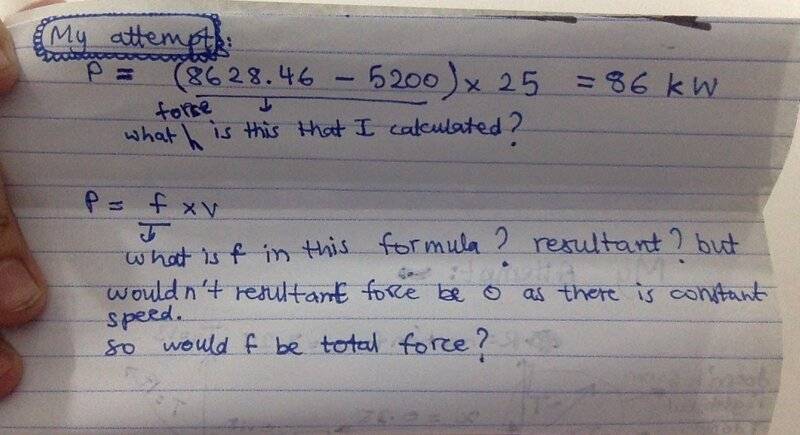 My attempt:
P = (8628.46 - 5200) x 25 = 86 kW
force
what is this that I calculated?
P = f x v
what is f in this formula? resultant? but
wouldn't resultant force be 0 as there is constant
speed.
so would f be total force?